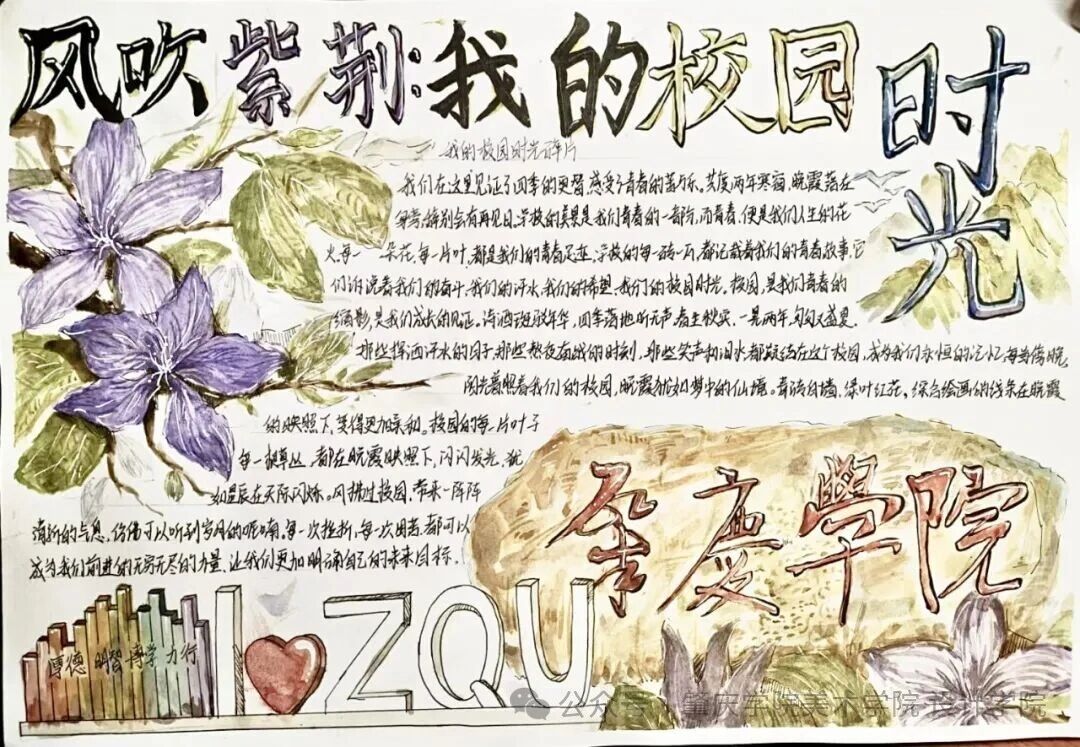 风吹紫荆:我的校园时光
我的校园时光碎片
我们在这里见证了四季的更替,感受了青春的喜与乐。共度两年寒窗,晚霞落在
身旁,特别会有再见日。学校的美景是我们青春的一部分,而青春,便是我们人生的花
火,每一朵花,每一片叶,都是我们的青春足迹,学校的每一砖一瓦,都记载着我们的青春故事,它
们诉说着我们的奋斗,我们的汗水,我们的希望,我们的校园时光。校园,是我们青春的
缩影,是我们成长的见证。诗酒斑驳年华,四季落地听无声,春生秋实,一晃两年,匆匆又盛夏。
那些挥洒汗水的日子,那些熬夜奋战的时刻,那些笑声和泪水都凝结在这个校园,成为我们永恒的记忆,每当傍晚,
阳光普照着我们的校园,晚霞犹如梦中的仙境。青砖白墙,绿叶红花,综合绘画的线条在晚霞
的映照下,变得更加柔和。校园的每一片叶子
每一棵草丛,都在晚霞映照下,闪闪发光,犹
如星辰在天际闪烁。风拂过校园,带来一阵阵
清新的气息,仿佛可以听到岁月的呢喃,每一次挫折,每一次困惑,都可以
成为我们前进的无穷无尽的力量,让我们更加明确自己的未来目标.
肇慶學院
厚德 明智 博学 力行
I ZQU
公众号·肇庆学院美术学院设计学院